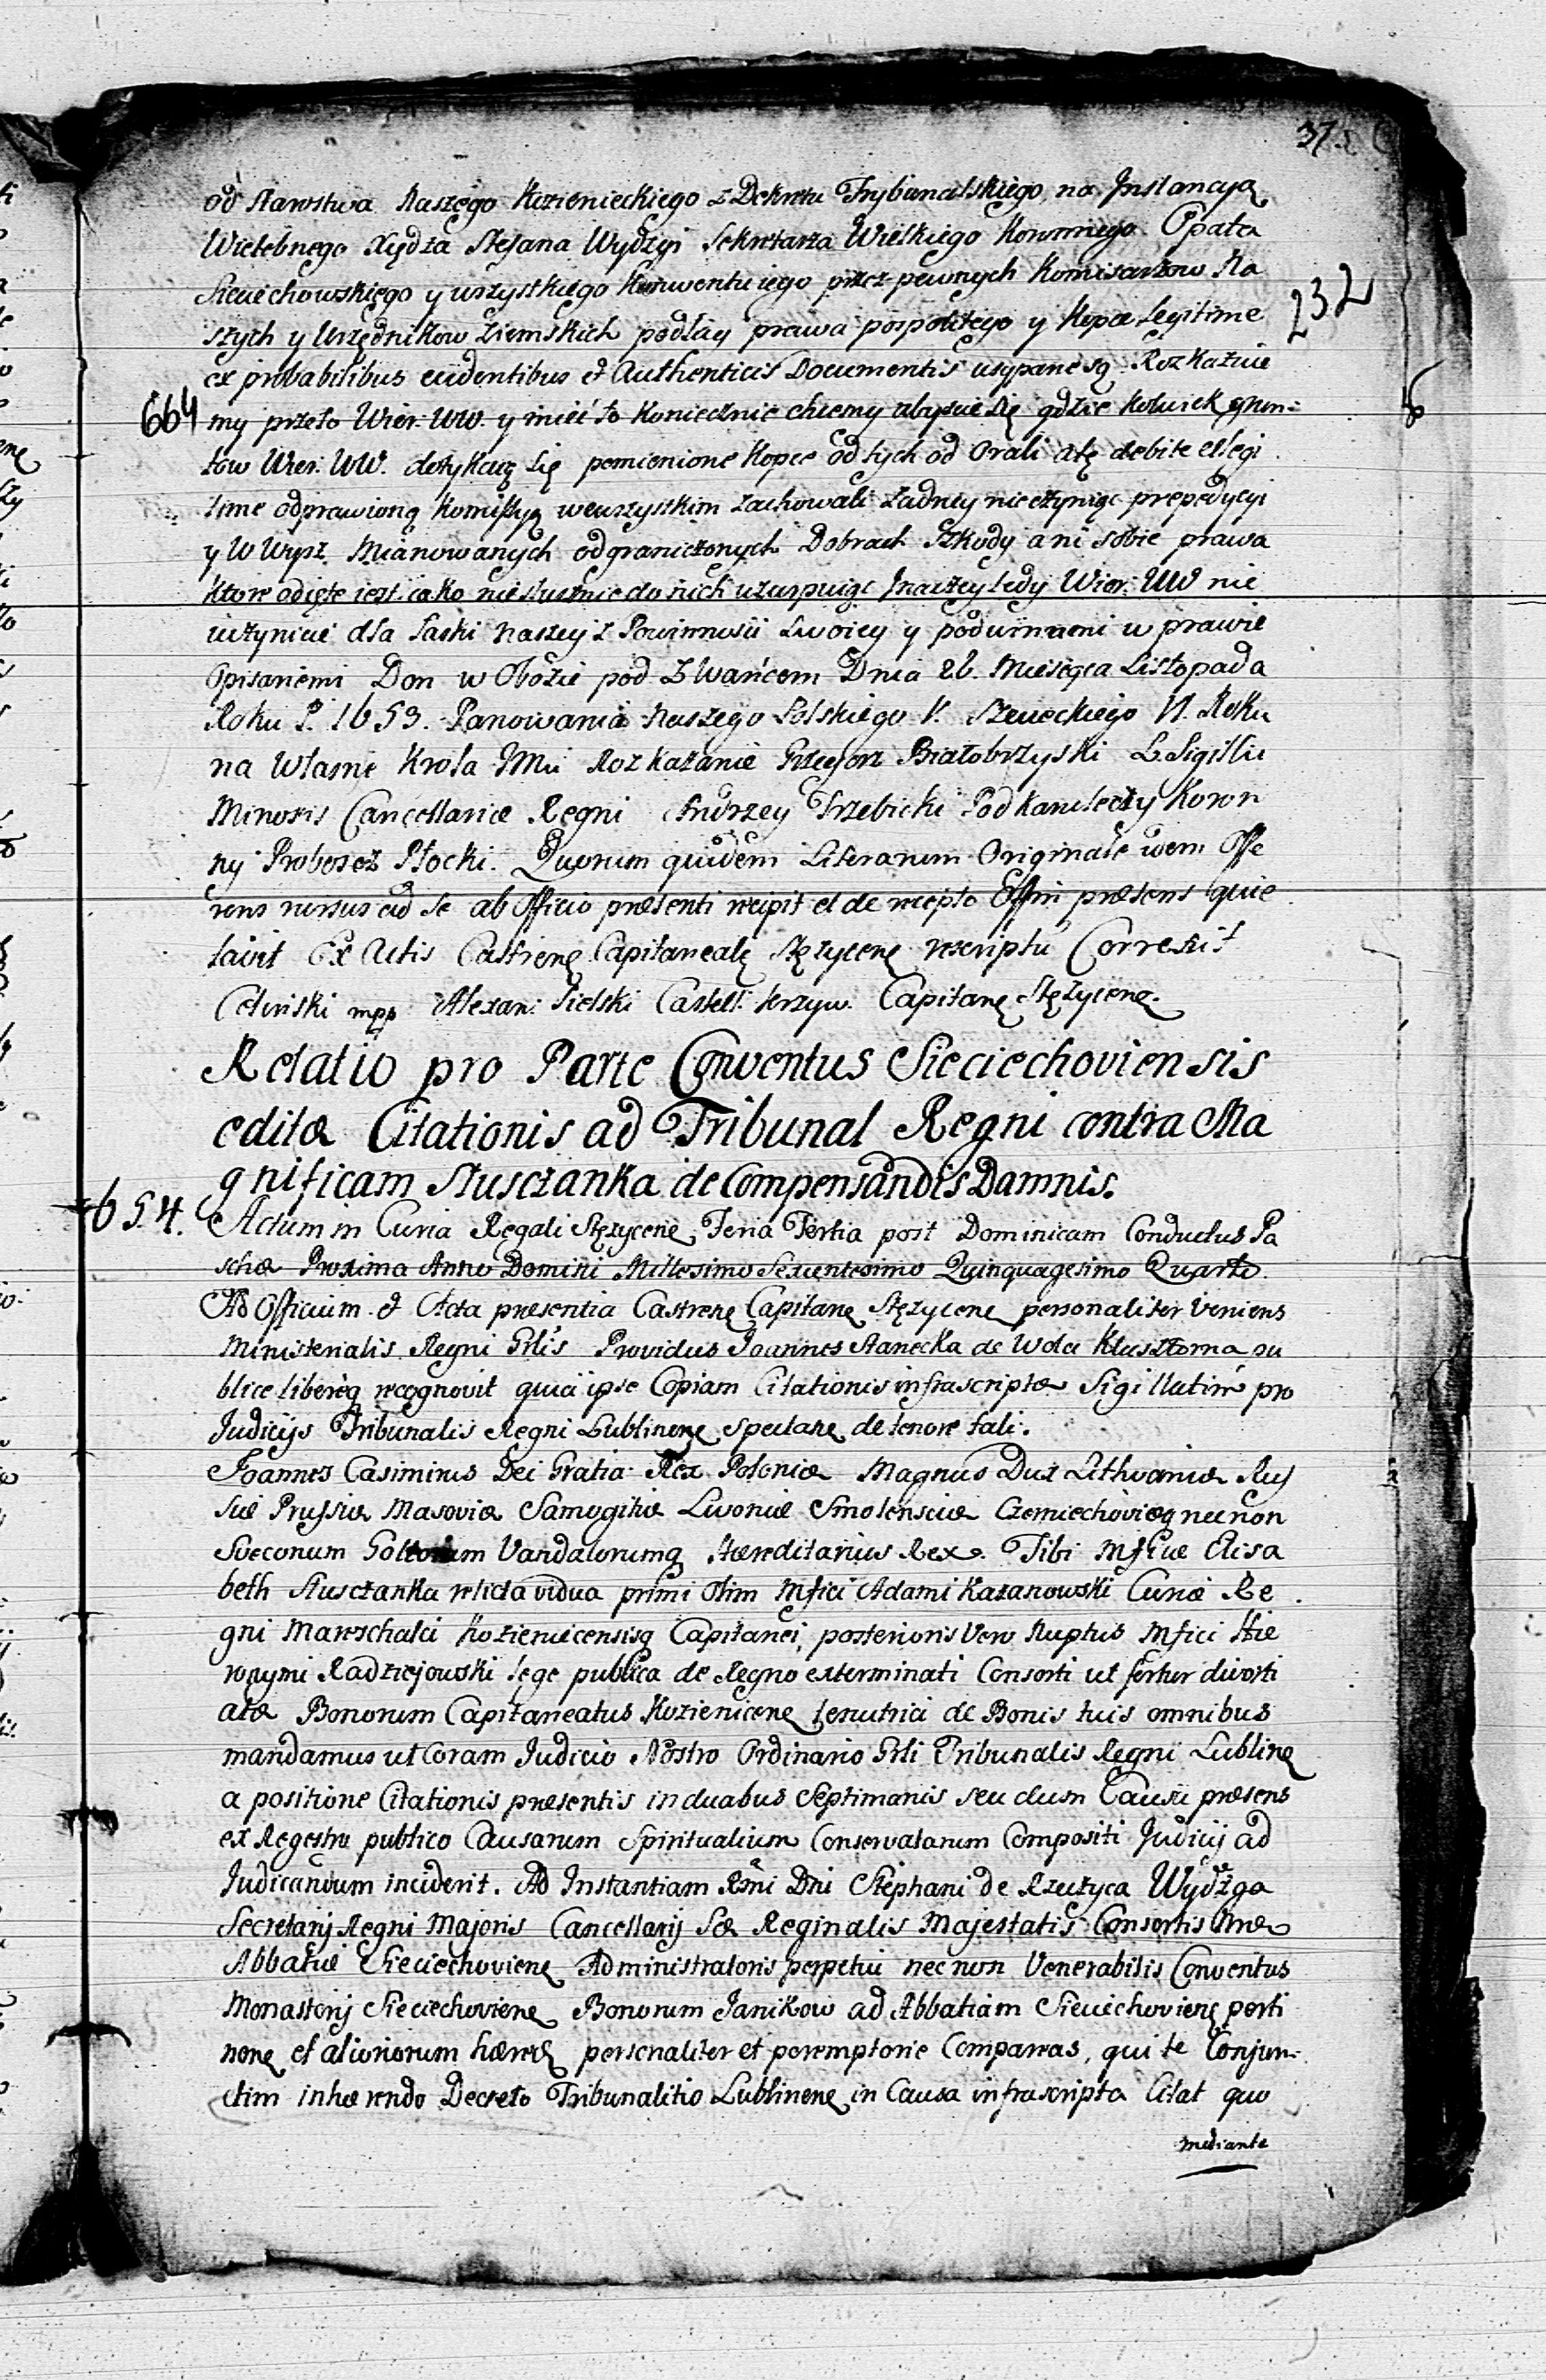 37.
od Starostwa Naszego Kozienieckiego z Dekretu Trybunalskiego, na Jnstancyą
Wielebnego Xiędza Stefana Wydzgi Sekretarza Wielkiego Koronnego Opata
Sieciechowskiego y wszystkiego Konwentu iego przez pewnych Komisarzow Na
232
szych y Urzędnikow Ziemskich podług prawa pospolitego y Kopce Legitime
ex probabilibus evidentibus et Authenticis Documentis usypane są Rozkazuie
664
my przeto Wier: UW. y mieć to Koniecznie chcemy abyscie się gdzie Kolwiek grun:
tow Wier: UW. dotykaią się pomienione Kopce od tych od Orali atę debite et legi
time odprawioną Komissyą wewszystkim zachowali żadney nieczyniąc prepedycyi
y W Wysz. Mianowanych odgraniczonych Dobrach Szkody ani sobie prawa
Ktore odięte iest iako niesłusznie do nich uzurpuiąc Jnaczey tedy Wier: UW nie
uczynicie dla Łaski naszey z Powinnosci Swoiey y pod winami w prawie
Opisanemi Dan w Obozie pod Zwańcem Dnia 26. Miesiąca Listopada
Roku P. 1653. Panowania Naszego Polskiego V. Szweckiego VI. Roku
na Własne Krola JMci Rozkazanie Grzegorz Białobrzyski L. Sigilli
Minoris Cancellariæ Regni Andrzey Trzebicki Podkanclerzy Koron
ny Proboszcz Płocki. Quorum quidem Literarum Originale idem Offe
rens rursus ad se ab Officio præsenti recipit et de recepto Offm præsens quie
tavit Ex Actis Castrens Capitaneal Stężycens rescriptu Correxit
Celinski mpp Alexan: Sielski Castell: Krzyw. Capitans Stężycens.
Relatio pro Parte Conventus Sieciechoviensis
editæ Citationis ad Tribunal Regni contra Ma
gnificam Słusczanka de Compensandis Damnis.
1654.
Actum in Curia Regali Stężycens Feria Tertia post Dominicam Conductus Pa
schæ Proxima Anno Domini Millesimo Sexcentesimo Quinquagesimo Quarto.
Ad Officium et Acta presentia Castrens Capitans Stężycens personaliter veniens
Ministerialis Regni Grlis Providus Joannes Stanecka de Wola Klasztorna pu
blice libereq recognovit quia ipse Copiam Citationis infrascriptæ Sigillatim pro
Judicijs Tribunalis Regni Lublinens spectans de tenore tali.
Joannes Casimirus Dei Gratia Rex Poloniæ Magnus Dux Lithvaniæ Rus
siæ Prussiæ Masoviæ Samogitiæ Livoniæ Smolensciæ Czerniechoviæq necnon
Svecorum Gottorum Vandalorumq Hæreditarius Rex. Tibi Mficæ Elisa
beth Słusczanka relicta vidua primi Olim Mfici Adami Kazanowski Curiæ Re
gni Mareschalci Kozienicensisq Capitanei, posterioris Vero Nuptus Mfici Hie
ronymi Radziejowski lege publica de Regno exterminati Consorti ut fertur divorti
atæ Bonorum Capitaneatus Kozienicens tenutrici de Bonis tuis omnibus
mandamus ut Coram Judicio Nostro Ordinario Grli Tribunalis Regni Lublins
a positione Citationis præsentis in duabus Septimanis seu dum Causa præsens
ex Regestro publico Causarum Spiritualium Conservatarum Compositi Judicij ad
Judicandum inciderit. Ad Instantiam Rdni Dni Stephani de Rzeczyca Wydzga
Secretarij Regni Majoris Cancellarij Sæ Reginalis Majestatis Consortis Nræ
Abbatiæ Sieciechoviens Administratoris perpetui nec non Venerabilis Conventus
Monasterij Sieciechoviens Bonorum Janikow ad Abbatiam Sieciechoviens perti
nens et aliorum hæred personaliter et peremptorie Compareas, qui te Conjun:
ctim inhærendo Decreto Tribunalitio Lublinens in Causa infrascripta Citat quo
mediante